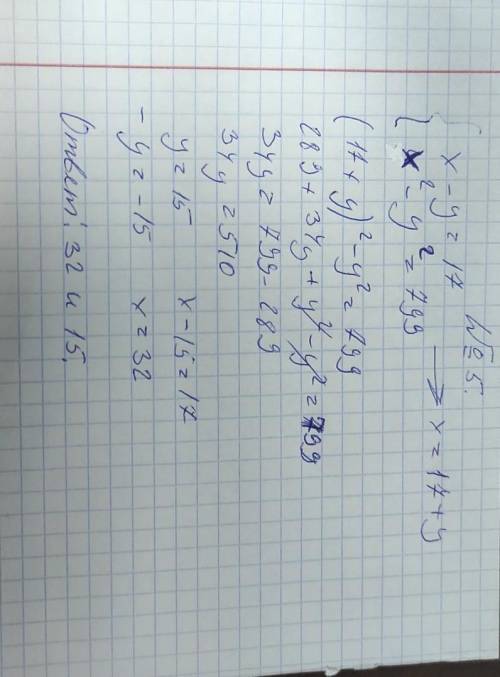 № 5.
x - y = 17
x² - y² = 799 → x = 17 + y
(17 + y)² - y² = 799
289 + 34y + y² - y² = 799
34y = 799 - 289
34y = 510
y = 15 x - 15 = 17
- y = -15 x = 32
Ответ: 32 и 15.